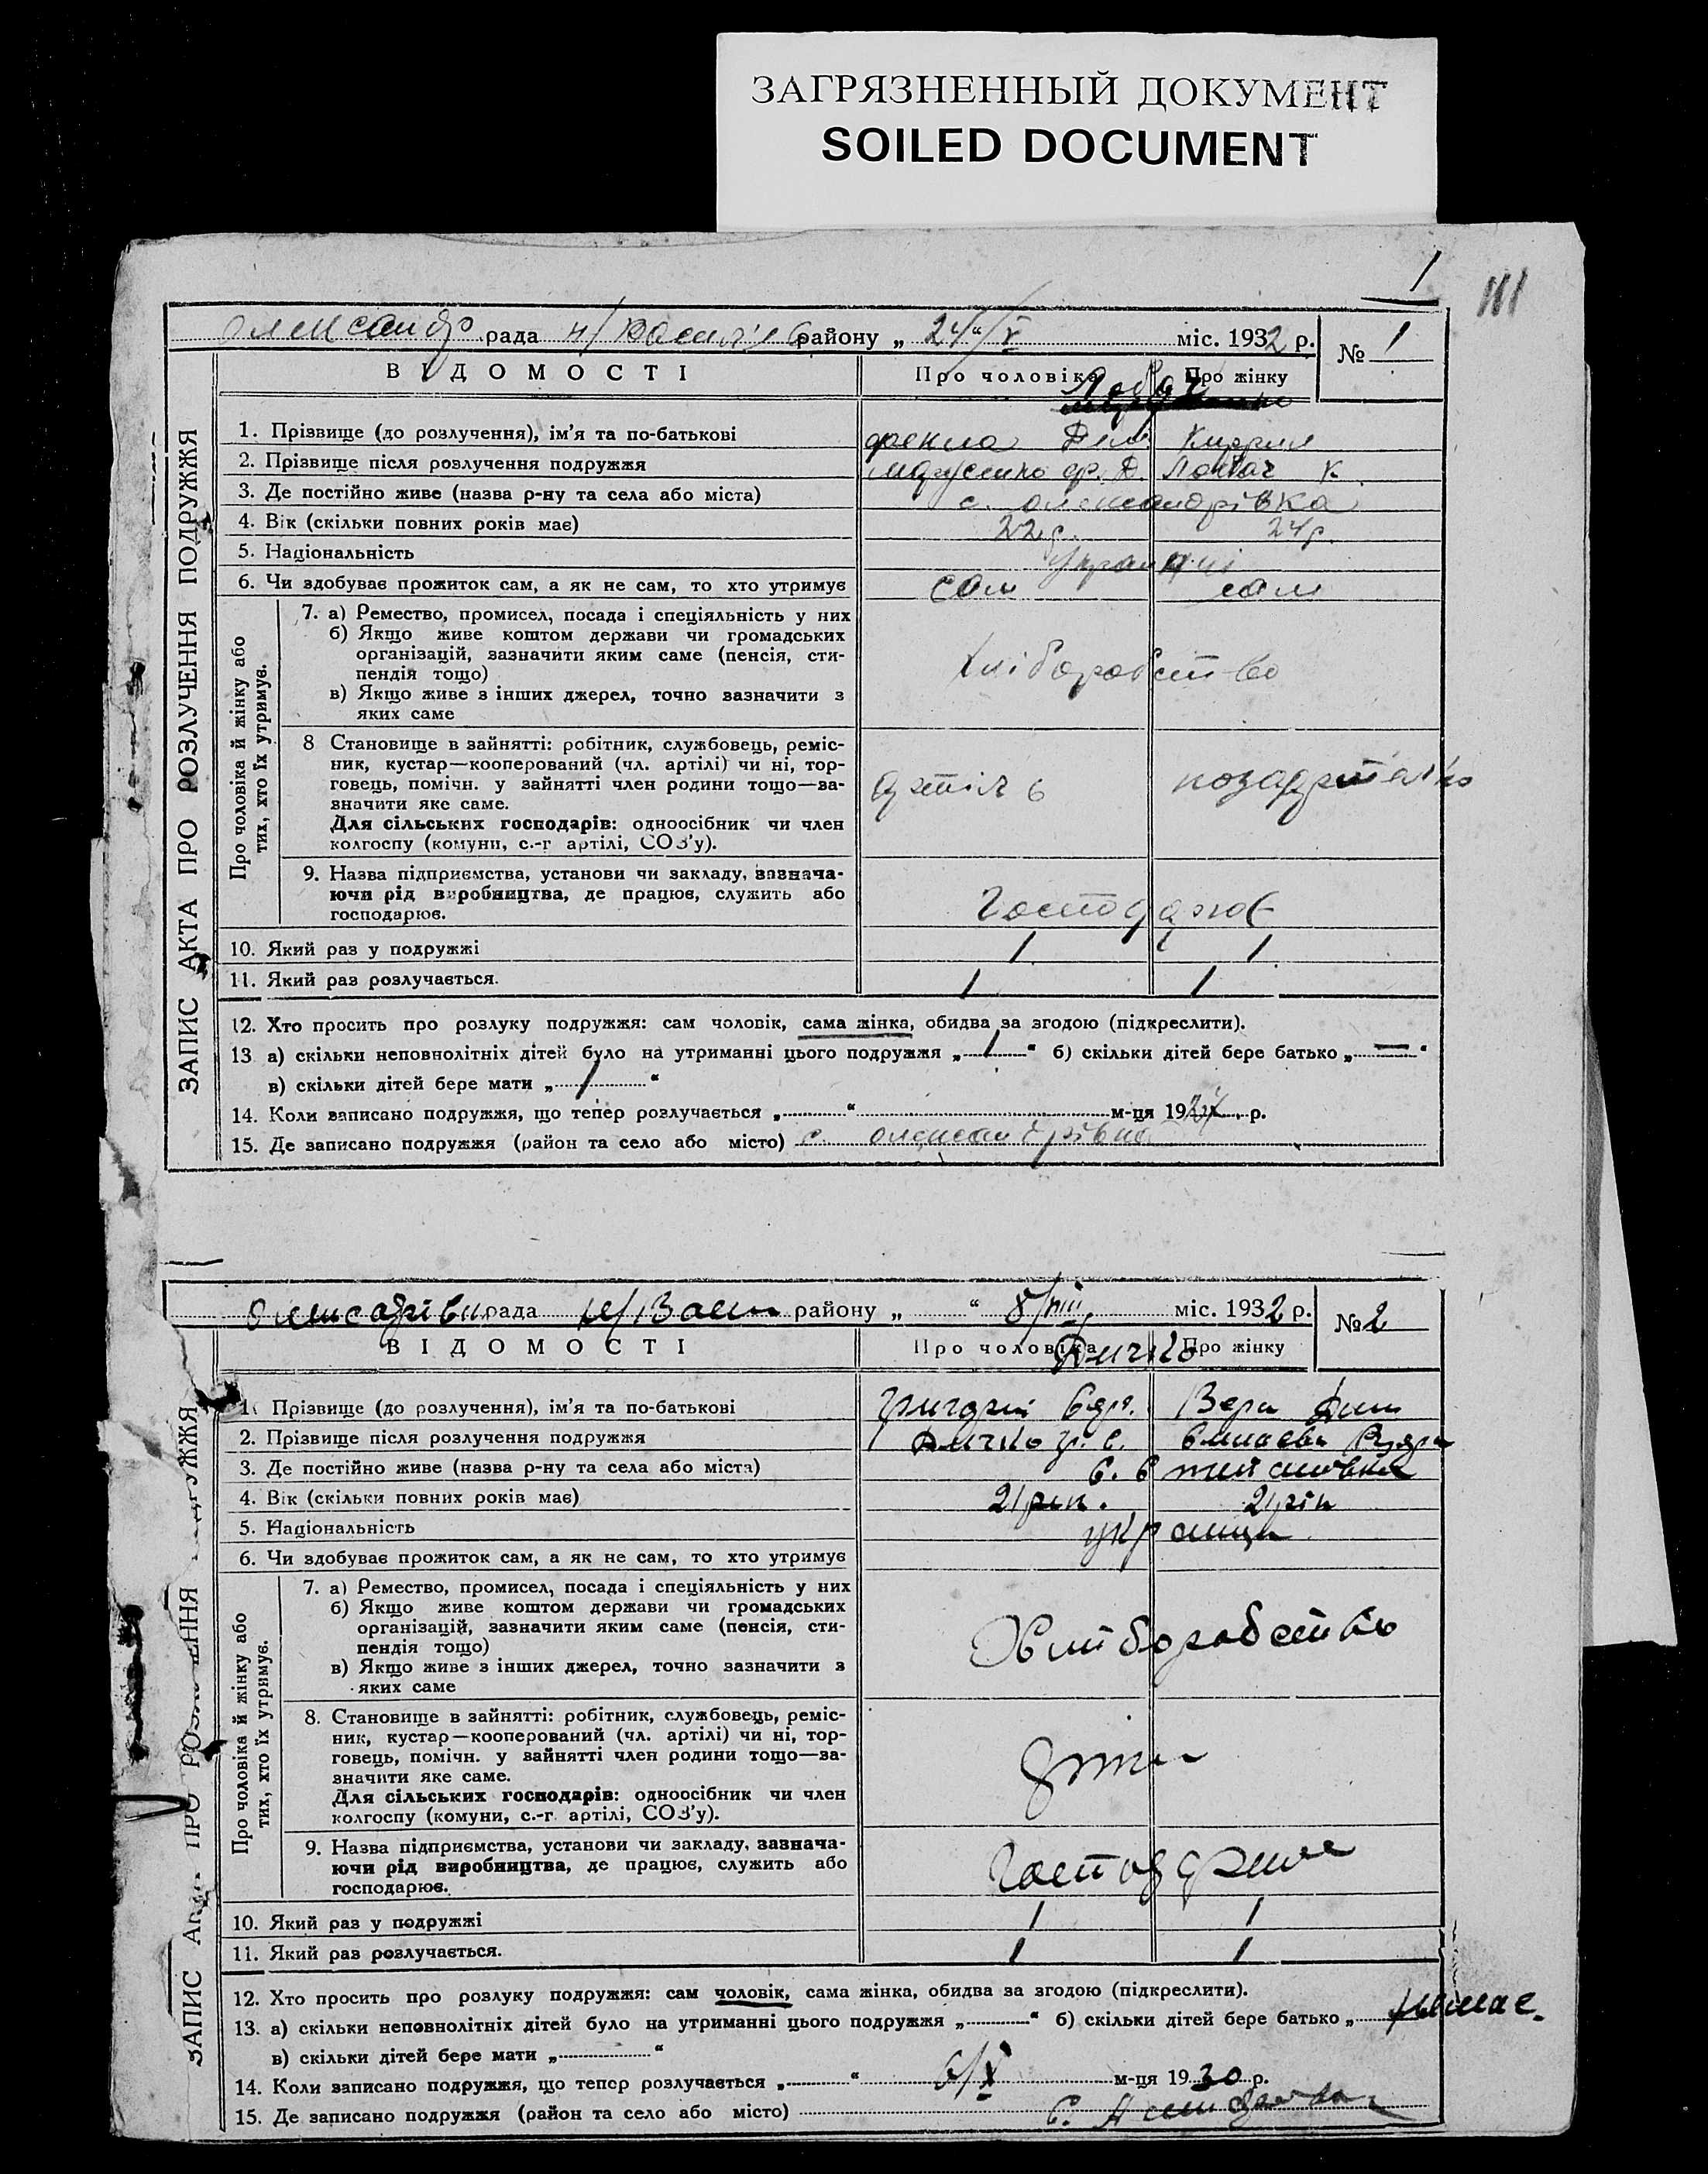 ЗАГРЯЗНЕННЫЙ ДОКУМЕНТ
SOILED DOCUMENT
1
111
Олександр рада н/Василів району „ 24“/V міс. 1932 р. № 1
ВІДОМОСТІ Про чоловіка Про жінку
Лобач
1. Прізвище (до розлучення), ім’я та по-батькові Фекла Дем Кирил
2. Прізвище після розлучення подружжя ф. Д. К
3. Де постійно живе (назва р-ну та села або міста) с. олександрівка
4. Вік (скільки повних років має) 22 р. 24 р.
5. Національність
6. Чи здобуває прожиток сам, а як не сам, то хто утримує сам сам
ЗАПИС АКТА ПРО РОЗЛУЧЕННЯ ПОДРУЖЖЯ
Про чоловіка й жінку або
тих, хто їх утримує.
7. а) Ремество, промисел, посада і спеціяльність у них
б) Якщо живе коштом держави чи громадських
організацій, зазначити яким саме (пенсія, сти-
пендія тощо)
в) Якщо живе з інших джерел, точно зазначити з
яких саме
хліборобство
8 Становище в зайнятті: робітник, службовець, реміс-
ник, кустар—кооперований (чл. артілі) чи ні, тор-
говець, помічн. у зайнятті член родини тощо—за-
значити яке саме.
Для сільських господарів: одноосібник чи член
колгоспу (комуни, с.-г артілі, СОЗ’у).
9. Назва підприємства, установи чи закладу, зазнача-
ючи рід виробництва, де працює, служить або
господарює.
господарює
10. Який раз у подружжі 1 1
11. Який раз розлучається. 1 1
12. Хто просить про розлуку подружжя: сам чоловік, сама жінка, обидва за згодою (підкреслити).
13 а) скільки неповнолітніх дітей було на утриманні цього подружжя „ 1 “ б) скільки дітей бере батько „ — “
в) скільки дітей бере мати „ 1 “
14. Коли записано подружжя, що тепер розлучається „ “ м-ця 19 р.
15. Де записано подружжя (район та село або місто) с. олександрівка
рада н/Васил району „ “ 8/VIII міс. 1932 р. № 2
ВІДОМОСТІ Про чоловіка Про жінку
Дичко
1. Прізвище (до розлучення), ім’я та по-батькові Григорій Вера
2. Прізвище після розлучення подружжя Дичко гр. Є.
3. Де постійно живе (назва р-ну та села або міста)
4. Вік (скільки повних років має) 21 рік. 21 рік
5. Національність українці
6. Чи здобуває прожиток сам, а як не сам, то хто утримує
ЗАПИС АК ПРО РОЗЛ ЕННЯ УЖЖЯ
Про чоловіка й жінку або
тих, хто їх утримує.
7. а) Ремество, промисел, посада і спеціяльність у них
б) Якщо живе коштом держави чи громадських
організацій, зазначити яким саме (пенсія, сти-
пендія тощо)
в) Якщо живе з інших джерел, точно зазначити з
яких саме
Хліборобство
8. Становище в зайнятті: робітник, службовець, реміс-
ник, кустар—кооперований (чл. артілі) чи ні, тор-
говець, помічн. у зайнятті член родини тощо—за-
значити яке саме.
Для сільських господарів: одноосібник чи член
колгоспу (комуни, с.-г. артілі, СОЗ’у).
9. Назва підприємства, установи чи закладу, зазнача-
ючи рід виробництва, де працює, служить або
господарює.
10. Який раз у подружжі 1 1
11. Який раз розлучається. 1 1
12. Хто просить про розлуку подружжя: сам чоловік, сама жінка, обидва за згодою (підкреслити).
13. а) скільки неповнолітніх дітей було на утриманні цього подружжя „ “ б) скільки дітей бере батько „ немає.
в) скільки дітей бере мати „ “
14. Коли записано подружжя, що тепер розлучається „ “ 6/X м-ця 1930 р.
15. Де записано подружжя (район та село або місто) с.